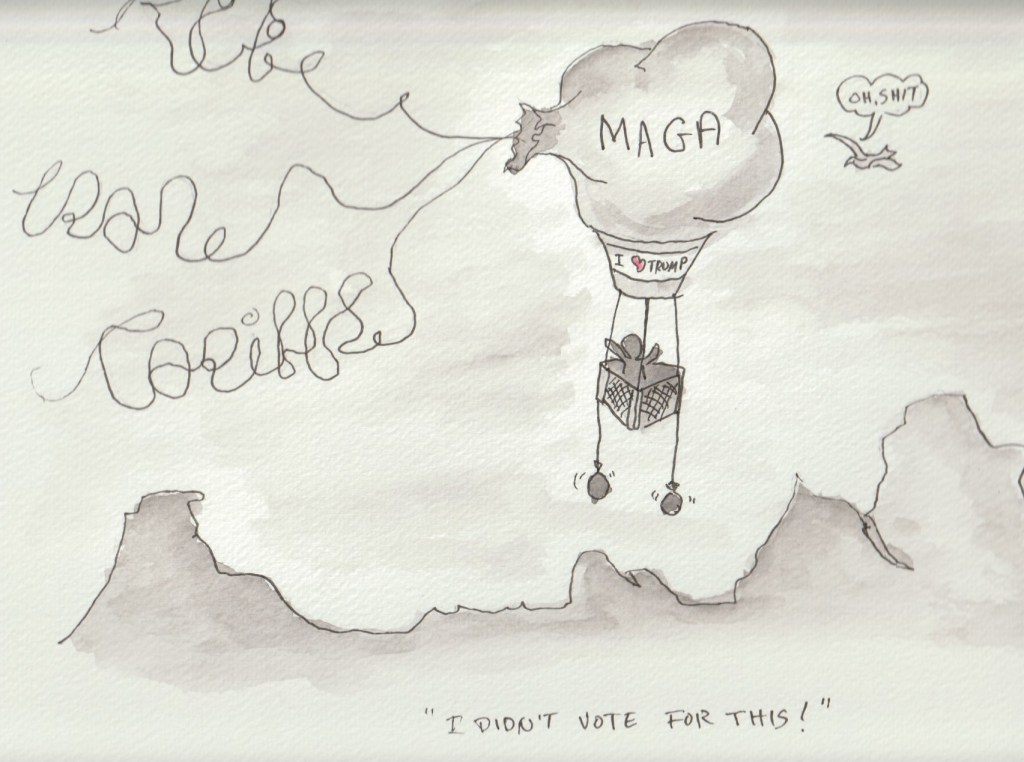 OH, SHIT
MAGA
Iran
I ♥ TRUMP
Tariffs
"I DIDN'T VOTE FOR THIS!"